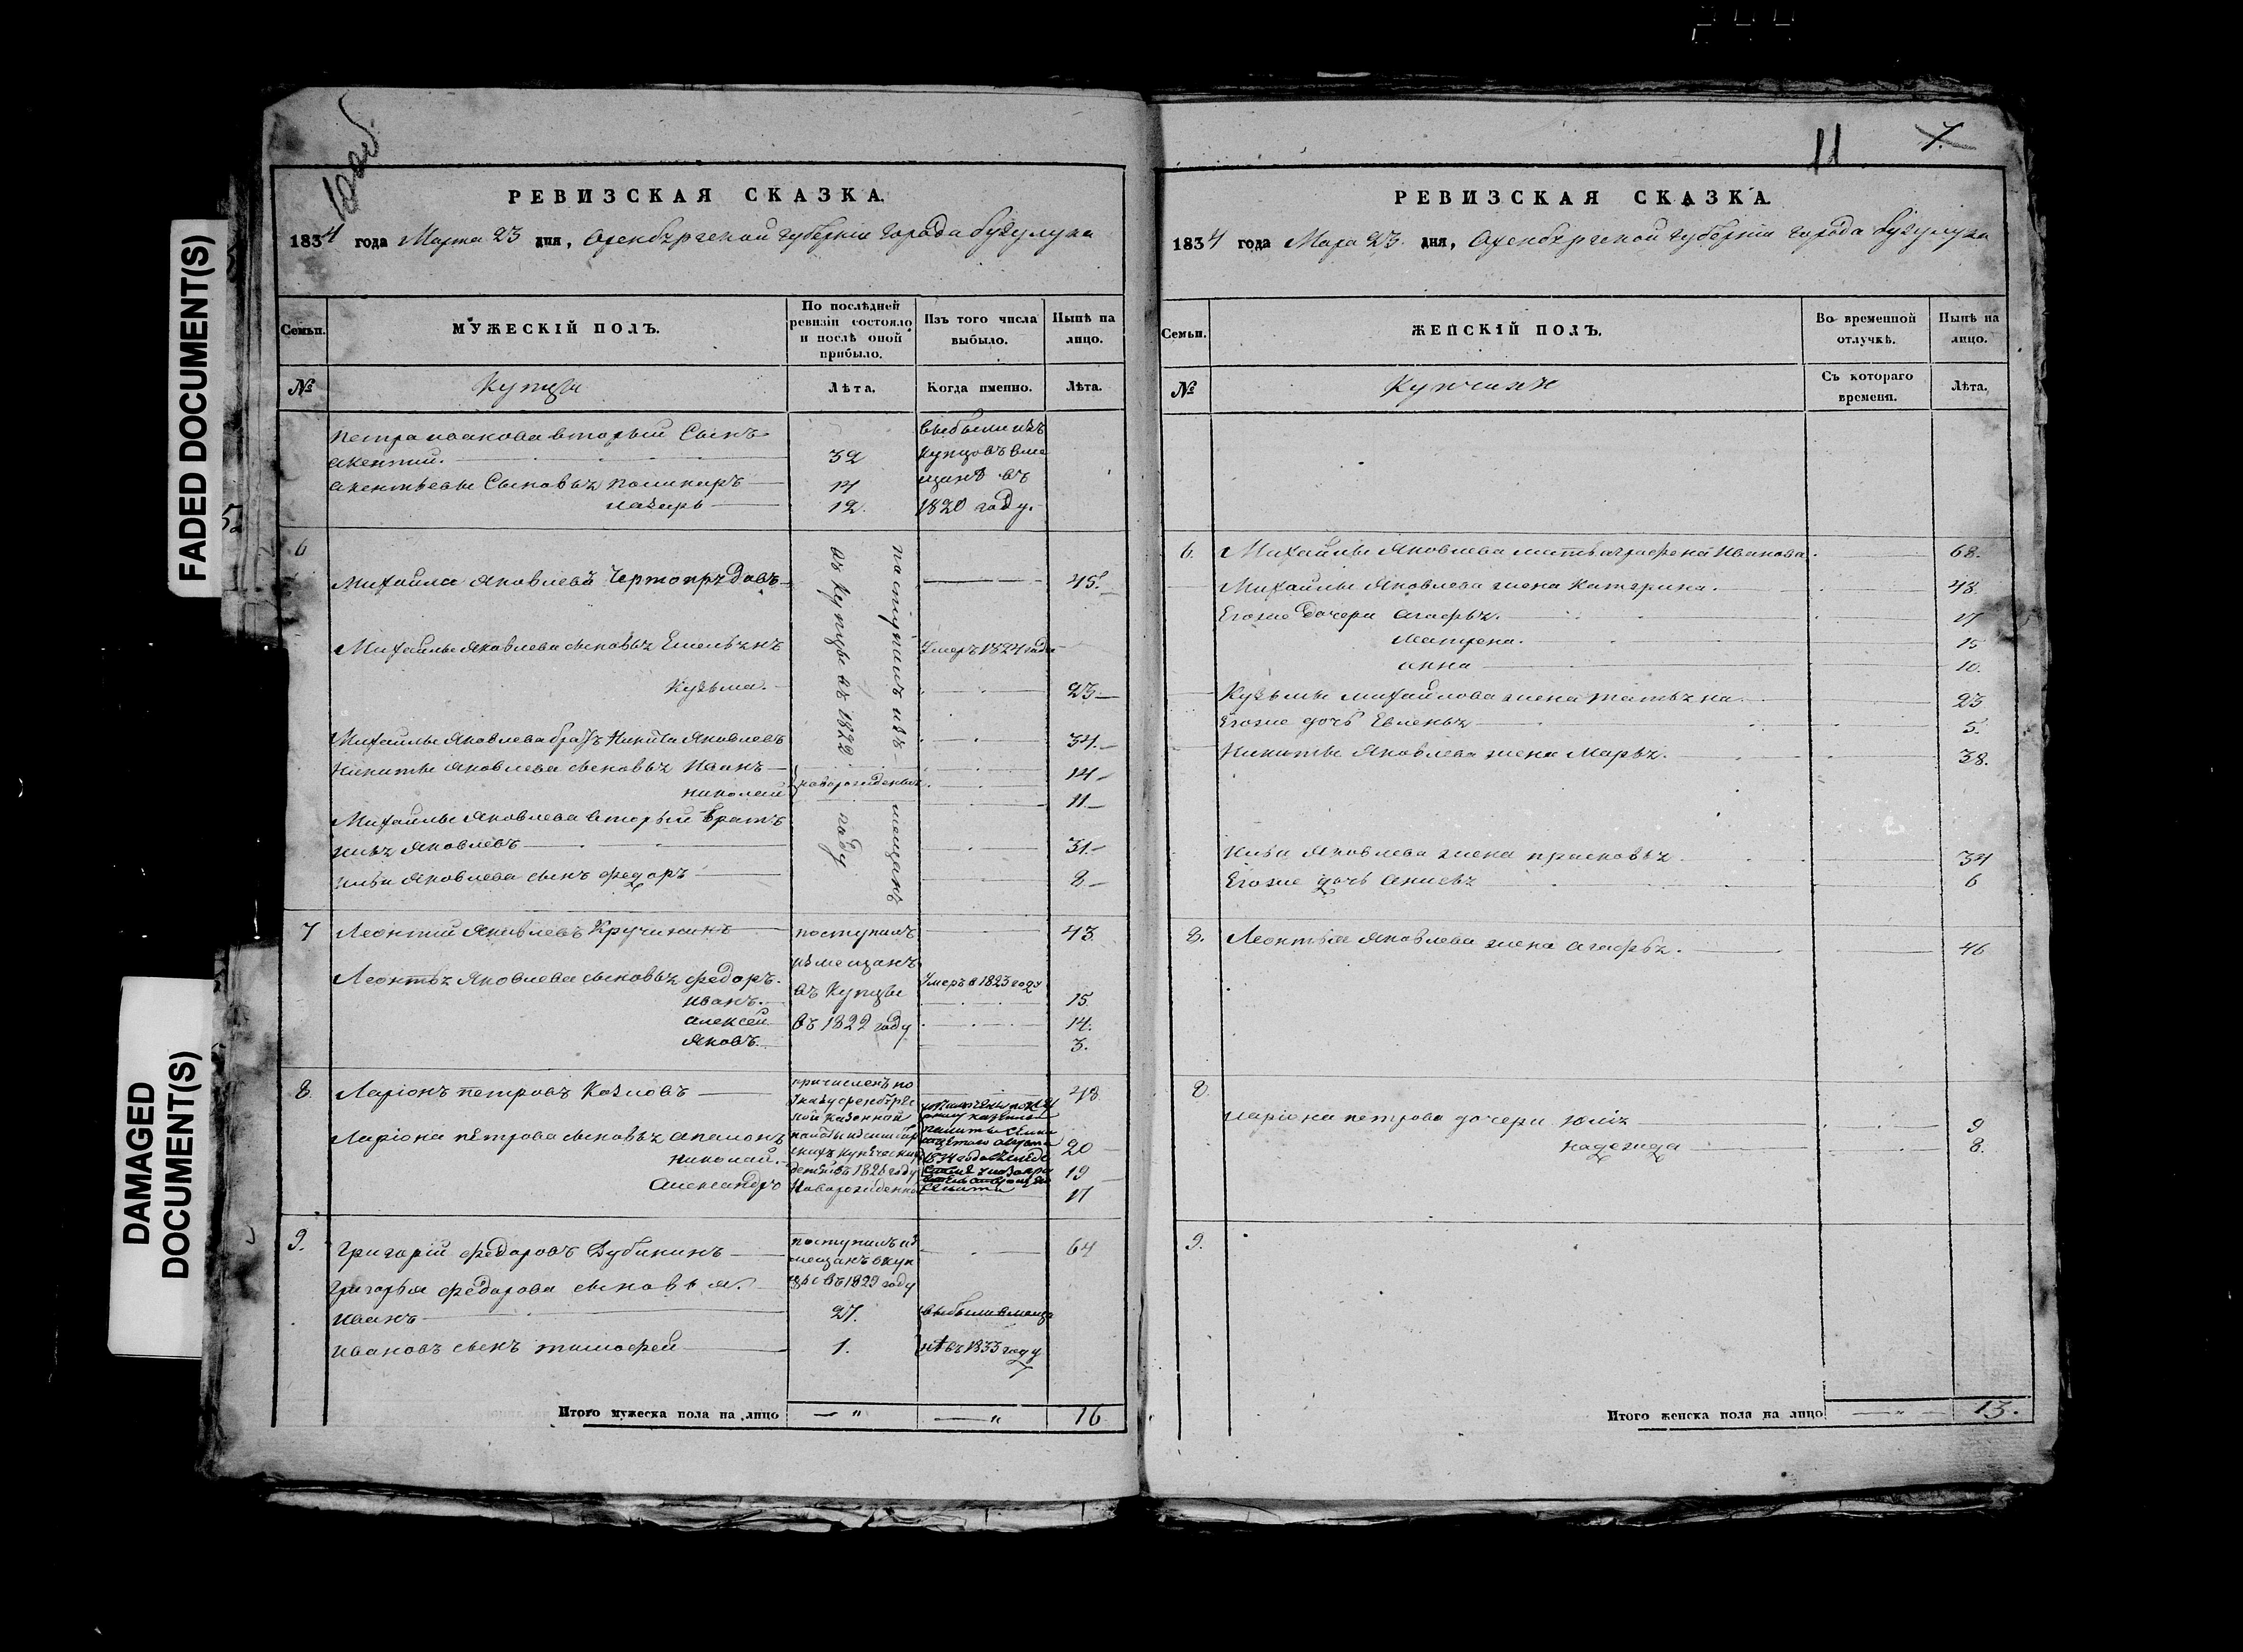 FADED DOCUMENT(S)
DAMAGED
DOCUMENT(S)
РЕВИЗСКАЯ СКАЗКА.
1834 года Марта 23 дня, Оренбургской губернии города Бугулука
Семьи.
МУЖЕСКІЙ ПОЛЪ.
По послѣдней
ревизіи состояло
и послѣ оной
прибыло.
Изъ того числа
выбыло.
Нынѣ на
лицо.
№
Купцы
Лѣта.
Когда именно.
Лѣта.
Петра Исакова вторый Сынъ
выбыли изъ
акентий.
32
купцовъ вме
акентьевы Сыновья поликарѣ
14
щанѣ въ
лазарь
12.
1820 году.
поступилъ изъ мещанъ
въ купцы въ 1822 году
6
Михаила Яковлевъ Чертопрудовъ
45.
Михаилы Яковлева сыновья Емельянъ
Умеръ 1824 года
Кузьма.
23
Михаилы Яковлева братъ Никита Яковлевъ
34.
Никиты Яковлева сыновья Иванъ
14
николай
новорожденыя
11
Михаилы Яковлева вторый братъ
илья Яковлевъ
31.
ильи Яковлева сынъ федоръ
8
7
Леонтий Яковлевъ Кручининъ
поступилъ
43
измещанъ
Леонтья Яковлева сыновья федоръ.
въ Купцы
Умеръ в 1823 году
иванъ.
15.
алексей
въ 1822 году
14.
Яковъ.
3.
8.
Ларіонъ петровъ Козловъ
причисленъ по
48
Указу оренбургс
кой Казенной
Ларіона петрова сыновья аполонъ
20
николай.
19
александръ
Новорожденной
17
9.
Григорій федоровъ Дубининъ
поступилъ из
64
мещанъ в куп
Григорья федорова сыновья.
цы въ 1829 году
иванъ
27.
выбыли в меща
ивановъ сынъ тимофей
1.
нѣ въ 1833 году
Итого мужеска пола на лицо
16
11
7.
РЕВИЗСКАЯ СКАЗКА.
1834 года Мара 23. дня, Оренбургской губерніи города Бугулука
Семьи.
ЖЕНСКІЙ ПОЛЪ.
Во временной
отлучкѣ.
Нынѣ на
лицо.
№
Съ котораго
времени.
Лѣта.
6.
Михаилы Яковлева мать аграфена Иванова.
68.
Михаилы Яковлева жена Катерина.
48.
Егоже дочери агафья.
17
Матрена.
15
анна
10.
Кузьмы михайлова жена татьяна.
23
Егоже дочь Евленья
5.
Никиты Яковлева жена Марья.
38.
Ильи Яковлева жена прасковья.
34
Егоже дочь анисья
6
8.
Леонтья Яковлева жена агафья.
46
8.
Ларіона петрова дочери юлія
9
надежда
8.
9.
Итого женска пола на лицо
13.